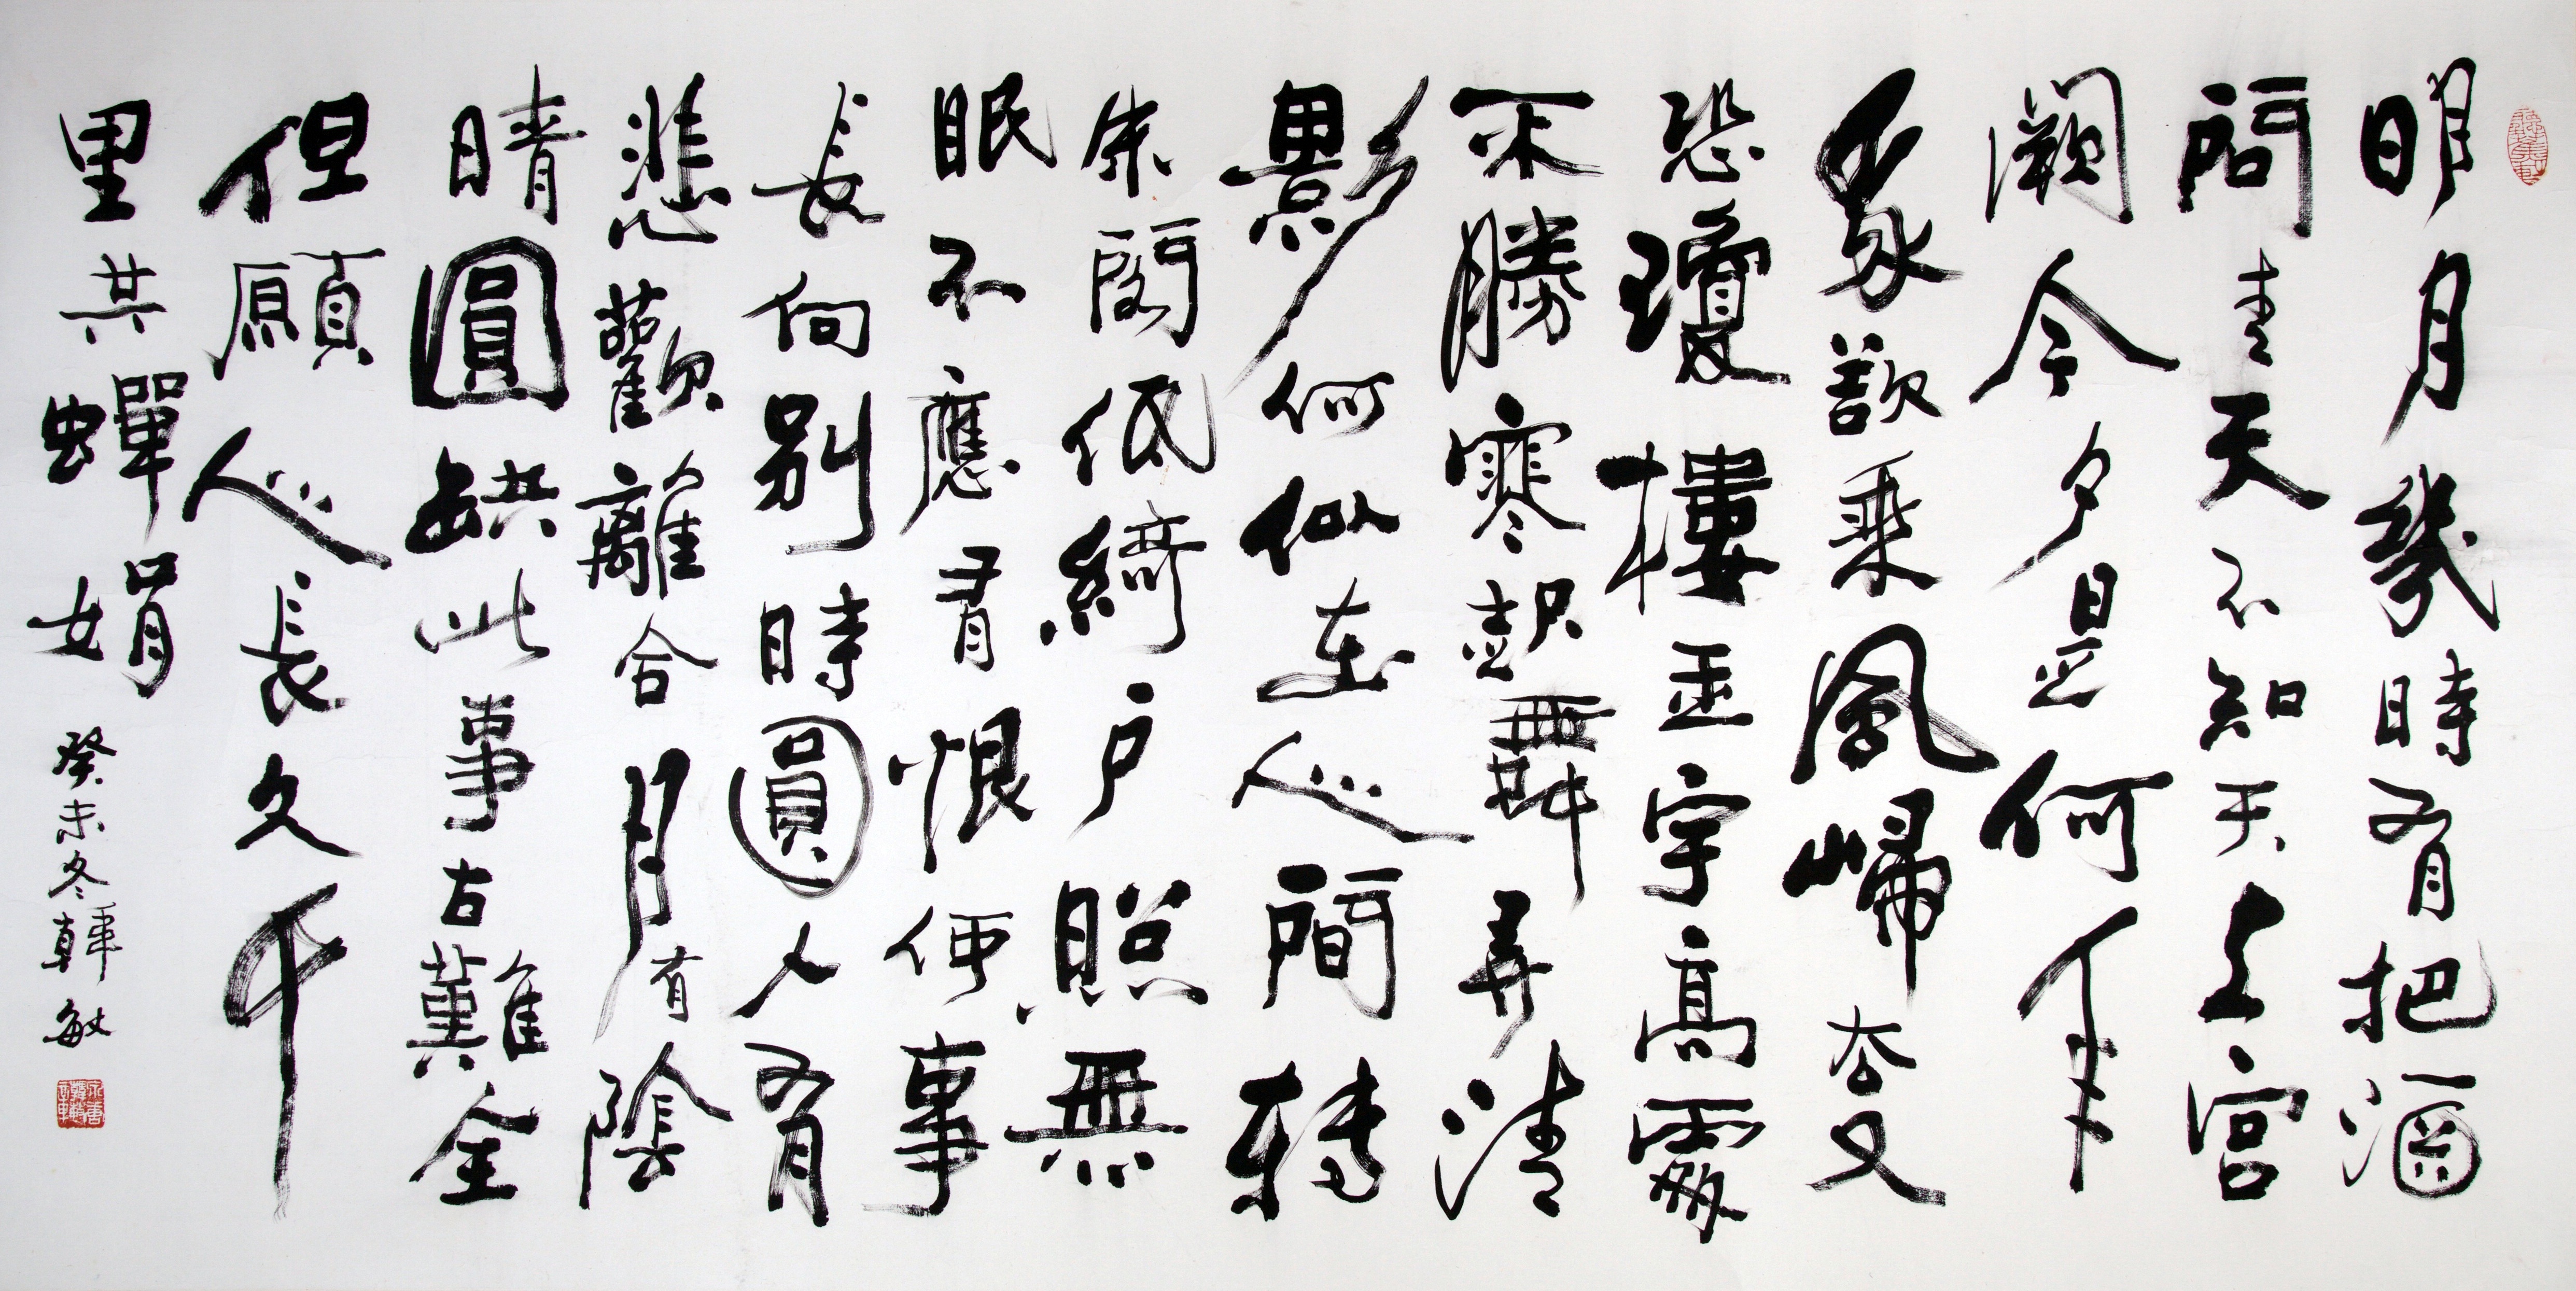 明月幾時有把酒
問青天不知天上宮
闕今夕是何年
我欲乘風歸去又
恐瓊樓玉宇高處
不勝寒起舞弄清
影何似在人間轉
朱閣低綺戶照無
眠不應有恨何事
長向別時圓人有
悲歡離合月有陰
晴圓缺此事古難全
但願人長久千
里共蟬娟
癸未冬韓敏